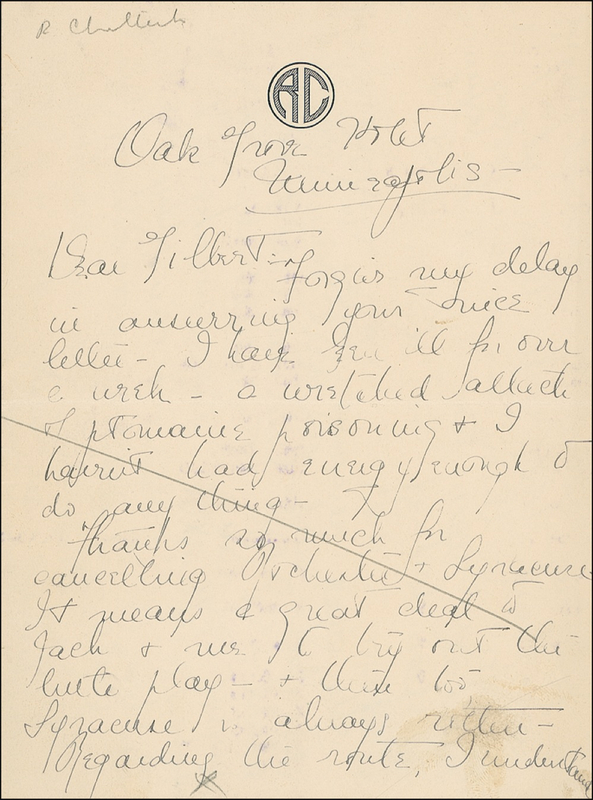 R Chatterton
RC
Oak Grove Hotel
Minneapolis —
Dear Gilbert:— Forgive my delay
in answering your nice
letter — I have been ill for over
a week — a wretched attack
of ptomaine poisoning & I
haven't had energy enough to
do any thing —
Thanks so much for
cancelling Rochester & Syracuse
It means a great deal to
Jack & me to try out the
little play — & then too
Syracuse is always rotten —
Regarding the route, I understand